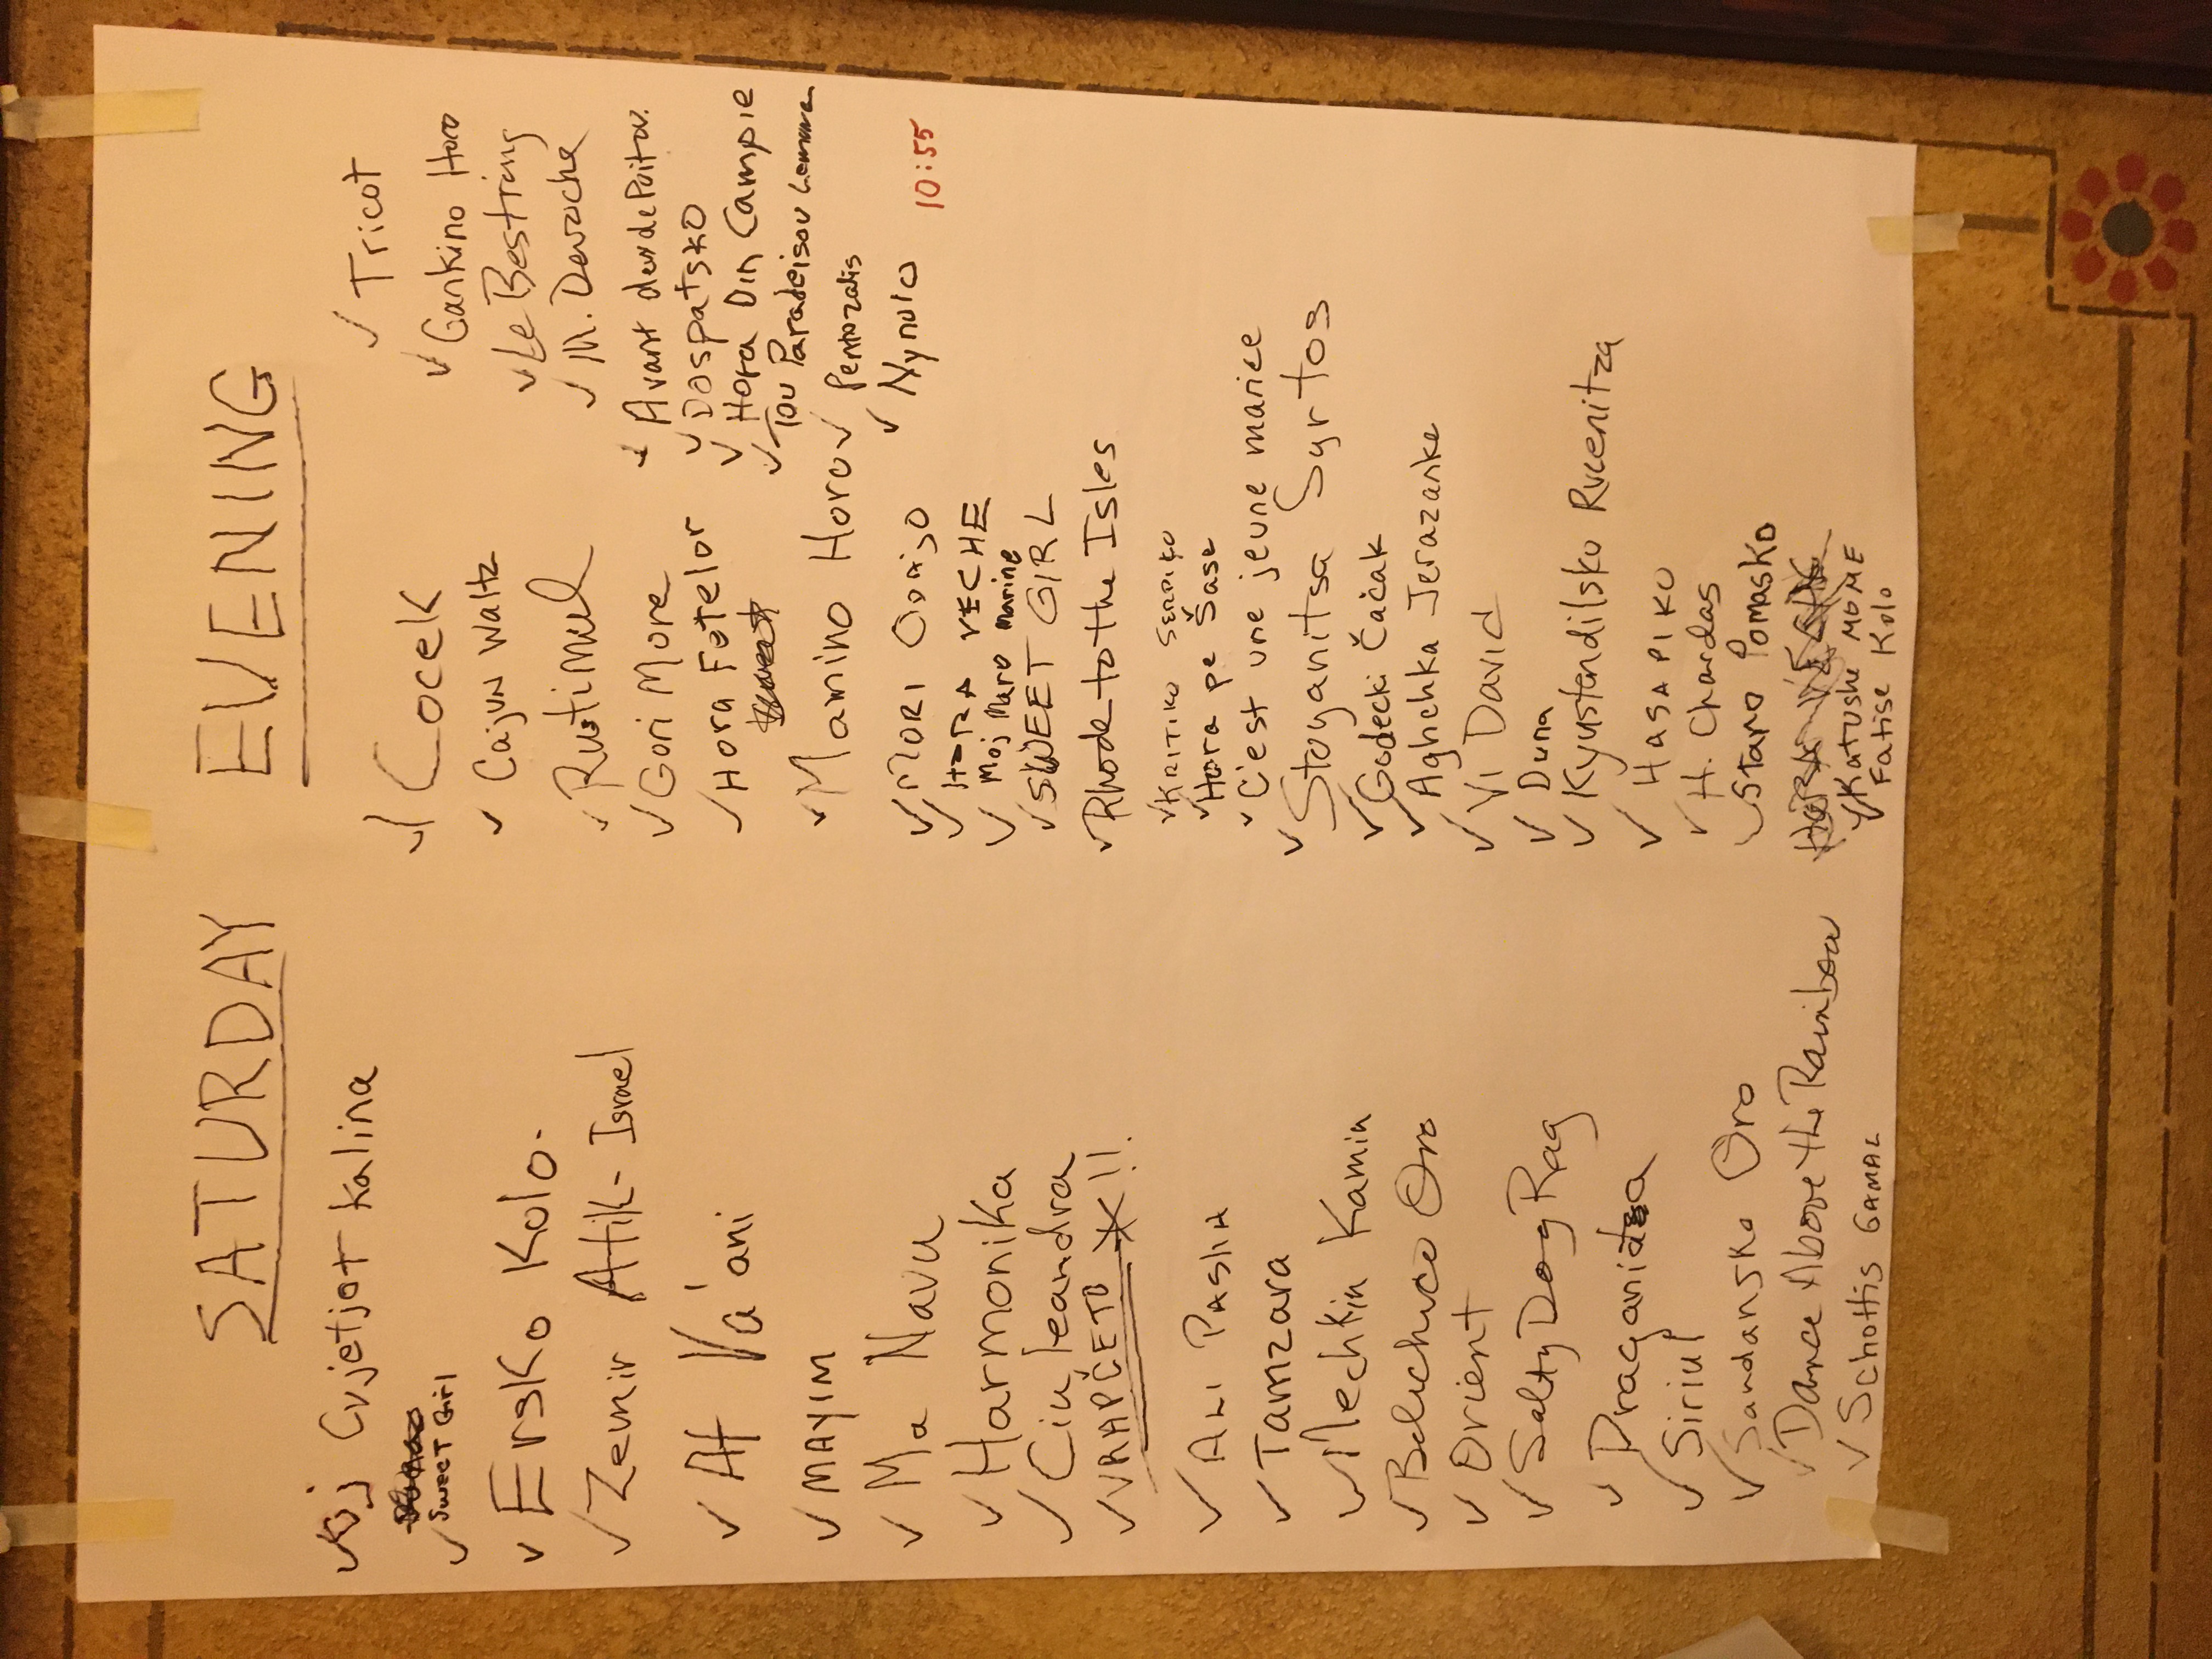 SATURDAY EVENING
✓ Joj Cvjetjet Kalina
✓ Sweet Girl
✓ Ersko Kolo.
✓ Zemir Atik - Israel
✓ At Va'ani
✓ MAYIM
✓ Ma Navu
✓ Harmonika
✓ Ciuleandra
✓ VRAPČETO !!
✓ ALI PASHA
✓ Tamzara
✓ Mechkin Kamin
✓ Belichvce Oro
✓ Orient
✓ Salty Dog Rag
✓ Dragaidasa
✓ Sirul
✓ Sandansko Oro
✓ Dance Above the Rainbow
✓ Schottis GAMAL
✓ Cocek
✓ Cajun Waltz
✓ Rustimul
✓ Gori More
✓ Hora Fetelor
✓ Mamino Horo
✓ MORI ODAJO
✓ HORA VECHE
✓ Moj Maro Marine
✓ SWEET GIRL
✓ Rhode to the Isles
✓ KRITIKO SERVIKO
✓ Hora pe Šase
✓ C'est une jeune mariee
✓ Stoyanitsa Syrtos
✓ Godecki Čačak
✓ Aghchka Jerazanke
✓ Vi David
✓ Duna
✓ Kyustendilsko Rucenitza
✓ HASAPIKO
✓ H. Chardas
✓ Staro Pomasko
✓ Katushe MOME
Fatise Kolo
✓ Tricot
✓ Gankino Horo
✓ Le Bestring
✓ M. Devoche
✓ Avant deux de Poitou.
✓ Dospatsko
✓ Hora Din Campie
✓ Tou Paradeisou
✓ Pentozalis
✓ Nynulo
10:55